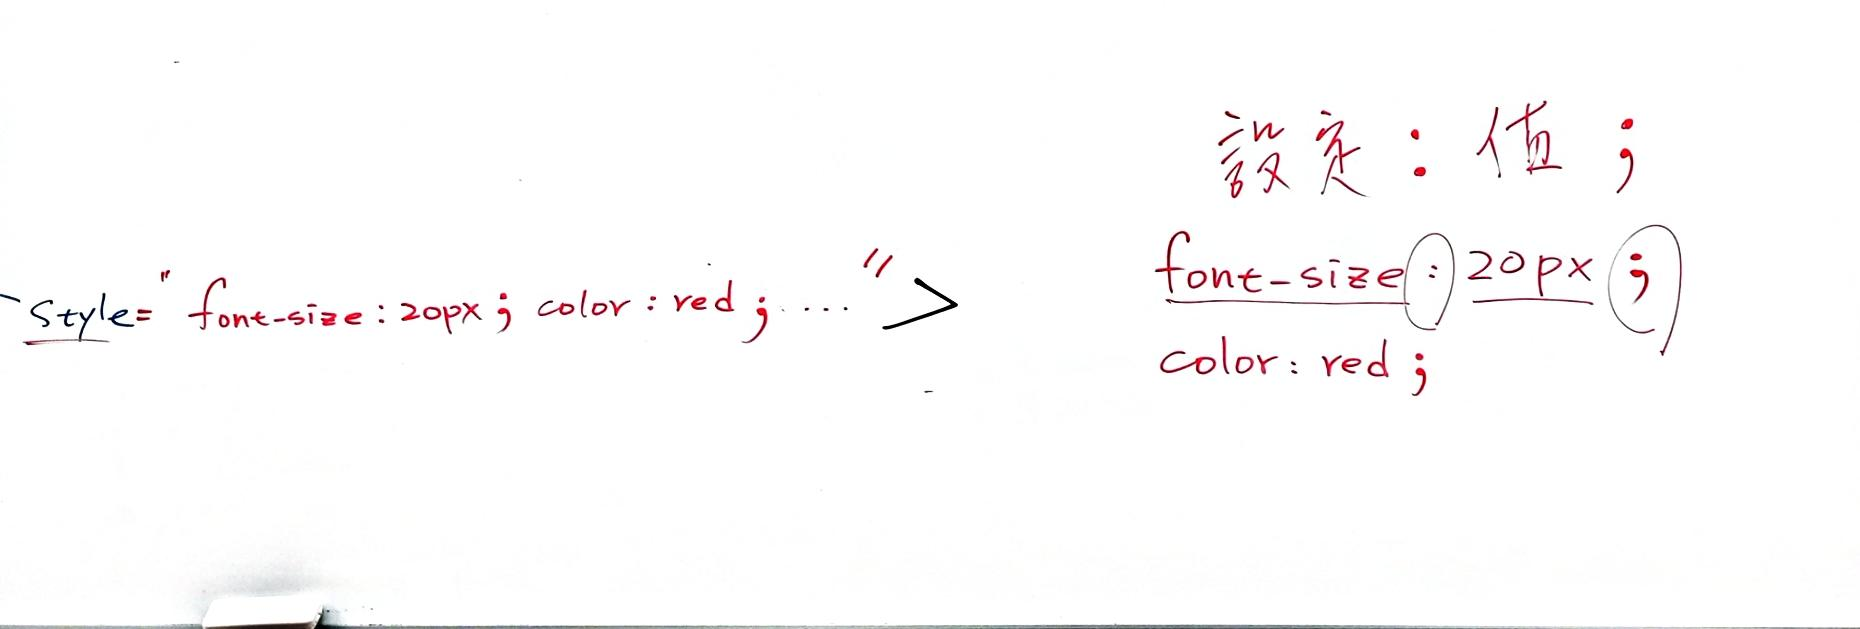 style="font-size:20px; color:red; ....">
設定:值;
font-size:20px;
color:red;